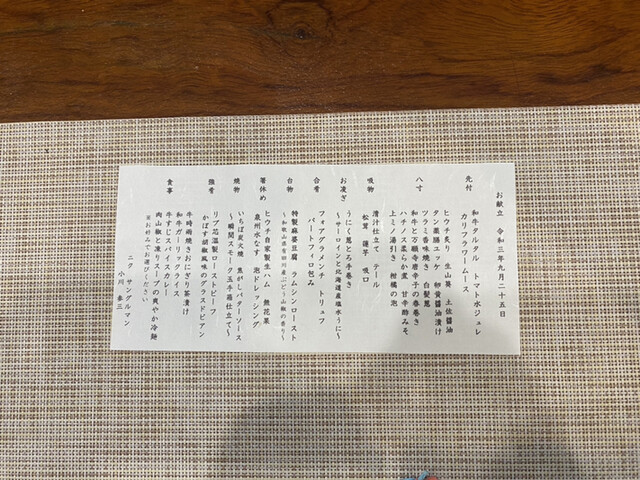 お献立　令和三年九月二十五日
先付
和牛タルタル　トマト水ジュレ
カリフラワームース
八寸
ヒウチ炙り　生山葵　土佐醤油
タン薬膳ユッケ　卵黄醤油漬け
ツラミ香味焼き　白髪葱
和牛と万願寺唐辛子の春巻き
ハチノス柔らか煮　甘辛酢みそ
上ミノ湯引き　柑橘の泡
吸物
清汁仕立て　テール
松茸　蓮芋　吸口
お凌ぎ
うにく葱とろ手巻き
～サーロインと北海道産塩水うに～
合肴
フィアグラメンチ　トリュフ
パートフィロ包み
台物
特製麻婆豆腐　ラムシンロースト
～和歌山県有田川産ぶどう山椒の香り～
箸休め
ヒウチ自家製生ハム　無花果
泉州水なす　泡ドレッシング
焼物
いちぼ炭火焼　焦がしバターソース
～瞬間スモーク玉手箱仕立て～
強肴
リブ芯温製ローストビーフ
かぼす胡椒風味のグラスドビアン
食事
牛時雨焼きおにぎり茶漬け
和牛ガーリックライス
牛すじスパイスカレー
肉山椒と凍りスープの爽やか冷麺
※お好みでお選びください
ニク　サングルマン
小川　参三